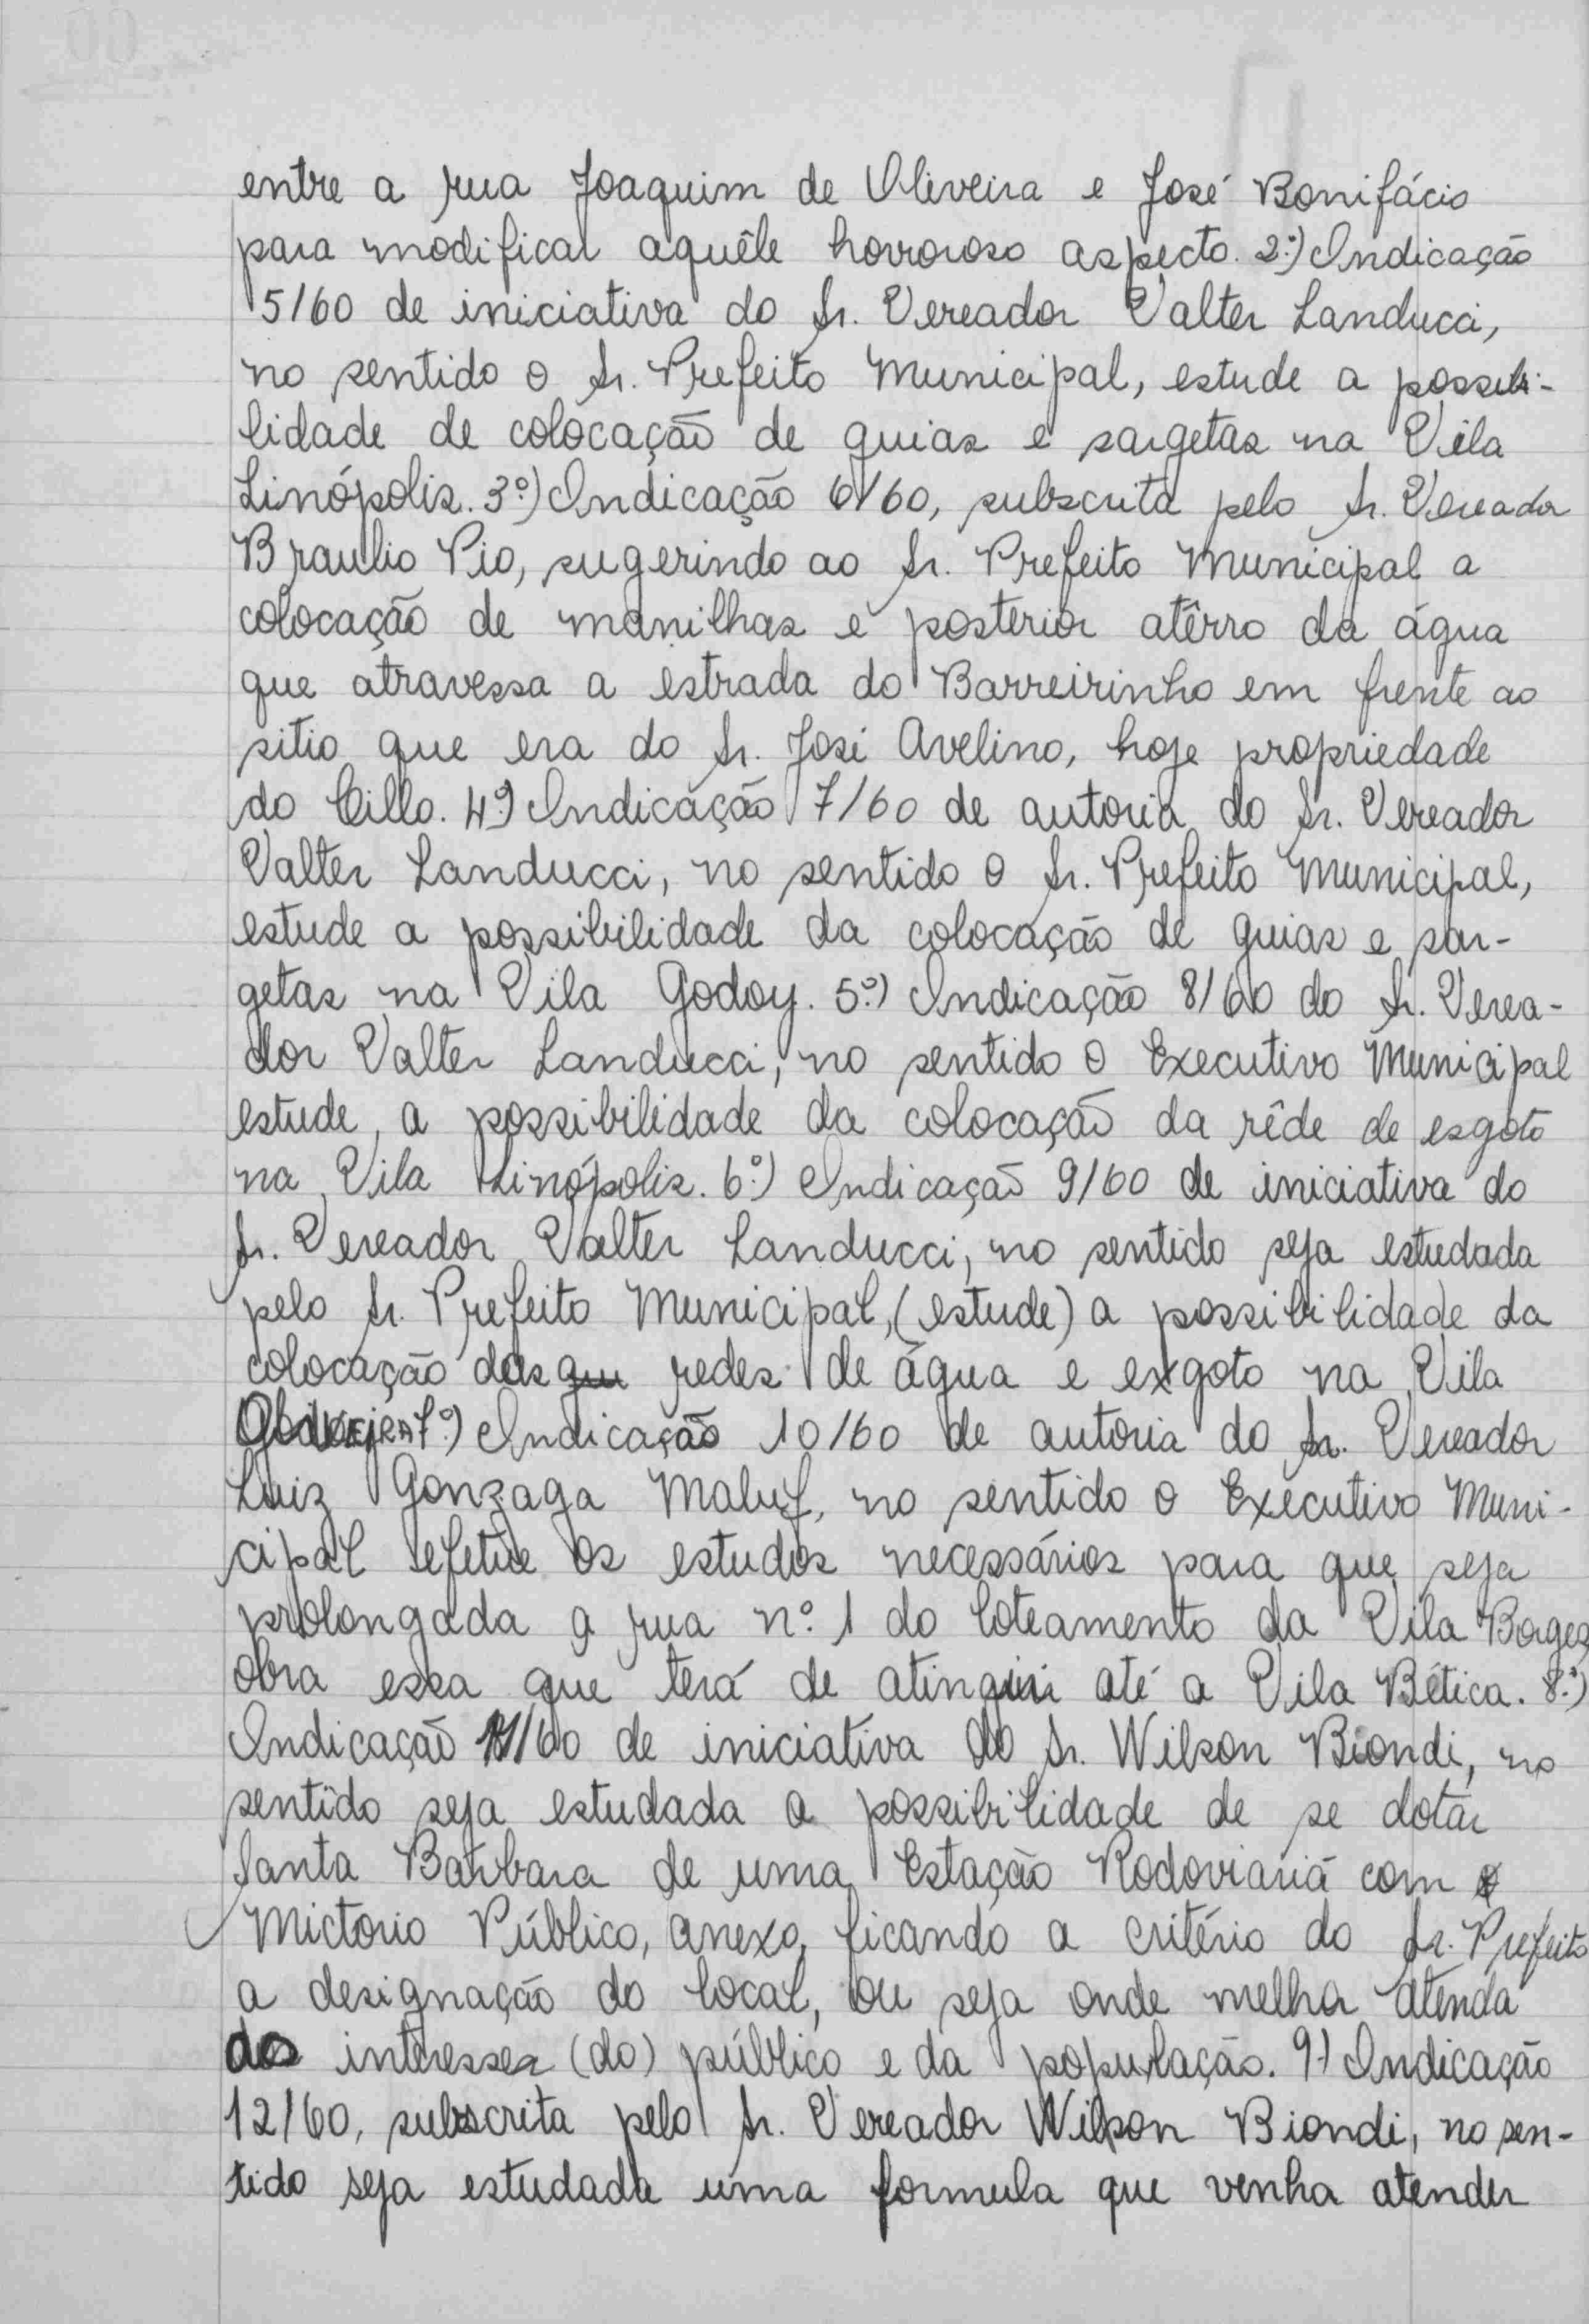 entre a rua Joaquim de Oliveira e José Bonifácio
para modificar aquêle horroroso aspecto. 2º) Indicação
5/60 de iniciativa do Sr. Vereador Valter Landucci,
no sentido o Sr. Prefeito Municipal, estude a possibi-
lidade de colocação de guias e sargetas na Vila
Linópolis. 3º) Indicação 6/60, subscrita pelo Sr. Vereador
Braulio Pio, sugerindo ao Sr. Prefeito Municipal a
colocação de manilhas e posterior atêrro da água
que atravessa a estrada do Barreirinho em frente ao
sitio que era do Sr. José Avelino, hoje propriedade
do Cillo. 4º) Indicação 7/60 de autoria do Sr. Vereador
Valter Landucci, no sentido o Sr. Prefeito Municipal,
estude a possibilidade da colocação de guias e sar-
getas na Vila Godoy. 5º) Indicação 8/60 do Sr. Verea-
dor Valter Landucci, no sentido o Executivo Municipal
estude, a possibilidade da colocação da rêde de esgoto
na Vila Linópolis. 6º) Indicação 9/60 de iniciativa do
Sr. Vereador Valter Landucci, no sentido seja estudada
pelo Sr. Prefeito Municipal, (estude) a possibilidade da
colocação das redes de água e exgoto na Vila
Oliveira 7º) Indicação 10/60 de autoria do Sr. Vereador
Luiz Gonzaga Maluf, no sentido o Executivo Muni-
cipal efetue os estudos necessários para que seja
prolongada a rua nº 1 do loteamento da Vila Borges
obra essa que terá de atingir até a Vila Bética. 8º)
Indicação 11/60 de iniciativa do Sr. Wilson Biondi, no
sentido seja estudada a possibilidade de se dotar
Santa Barbara de uma Estação Rodoviaria com
Mictorio Público, anexo, ficando a critério do Sr. Prefeito
a designação do local, ou seja onde melhor atenda
aos interesses (do) público e da população. 9º) Indicação
12/60, subscrita pelo Sr. Vereador Wilson Biondi, no sen-
tido seja estudada uma formula que venha atender